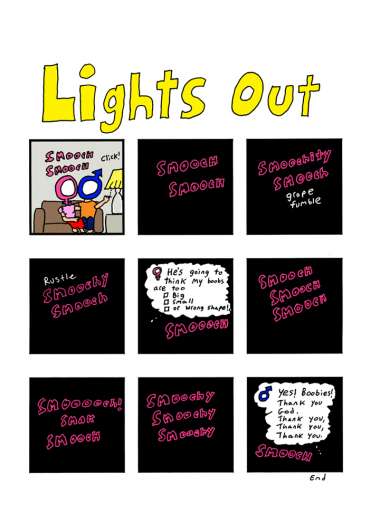 Lights Out
SMOOCH
SMOOCH
CLICK!
SMOOCH
SMOOCH
SMOOCHITY
SMEECH
grope
fumble
RUSTLE
SMOOCHY
SMOOCH
He's going to
think my boobs
are too
Big
Small
or wrong shape!
SMOOOCH
SMOOCH
SMOOCH
SMOOCH
SMOOOOCH!
SMAK
SMOOCH
SMOOCHY
SMOOCHY
SMOOCHY
Yes! Boobies!
Thank you
God.
Thank you,
Thank you,
Thank you.
SMOOCH
End